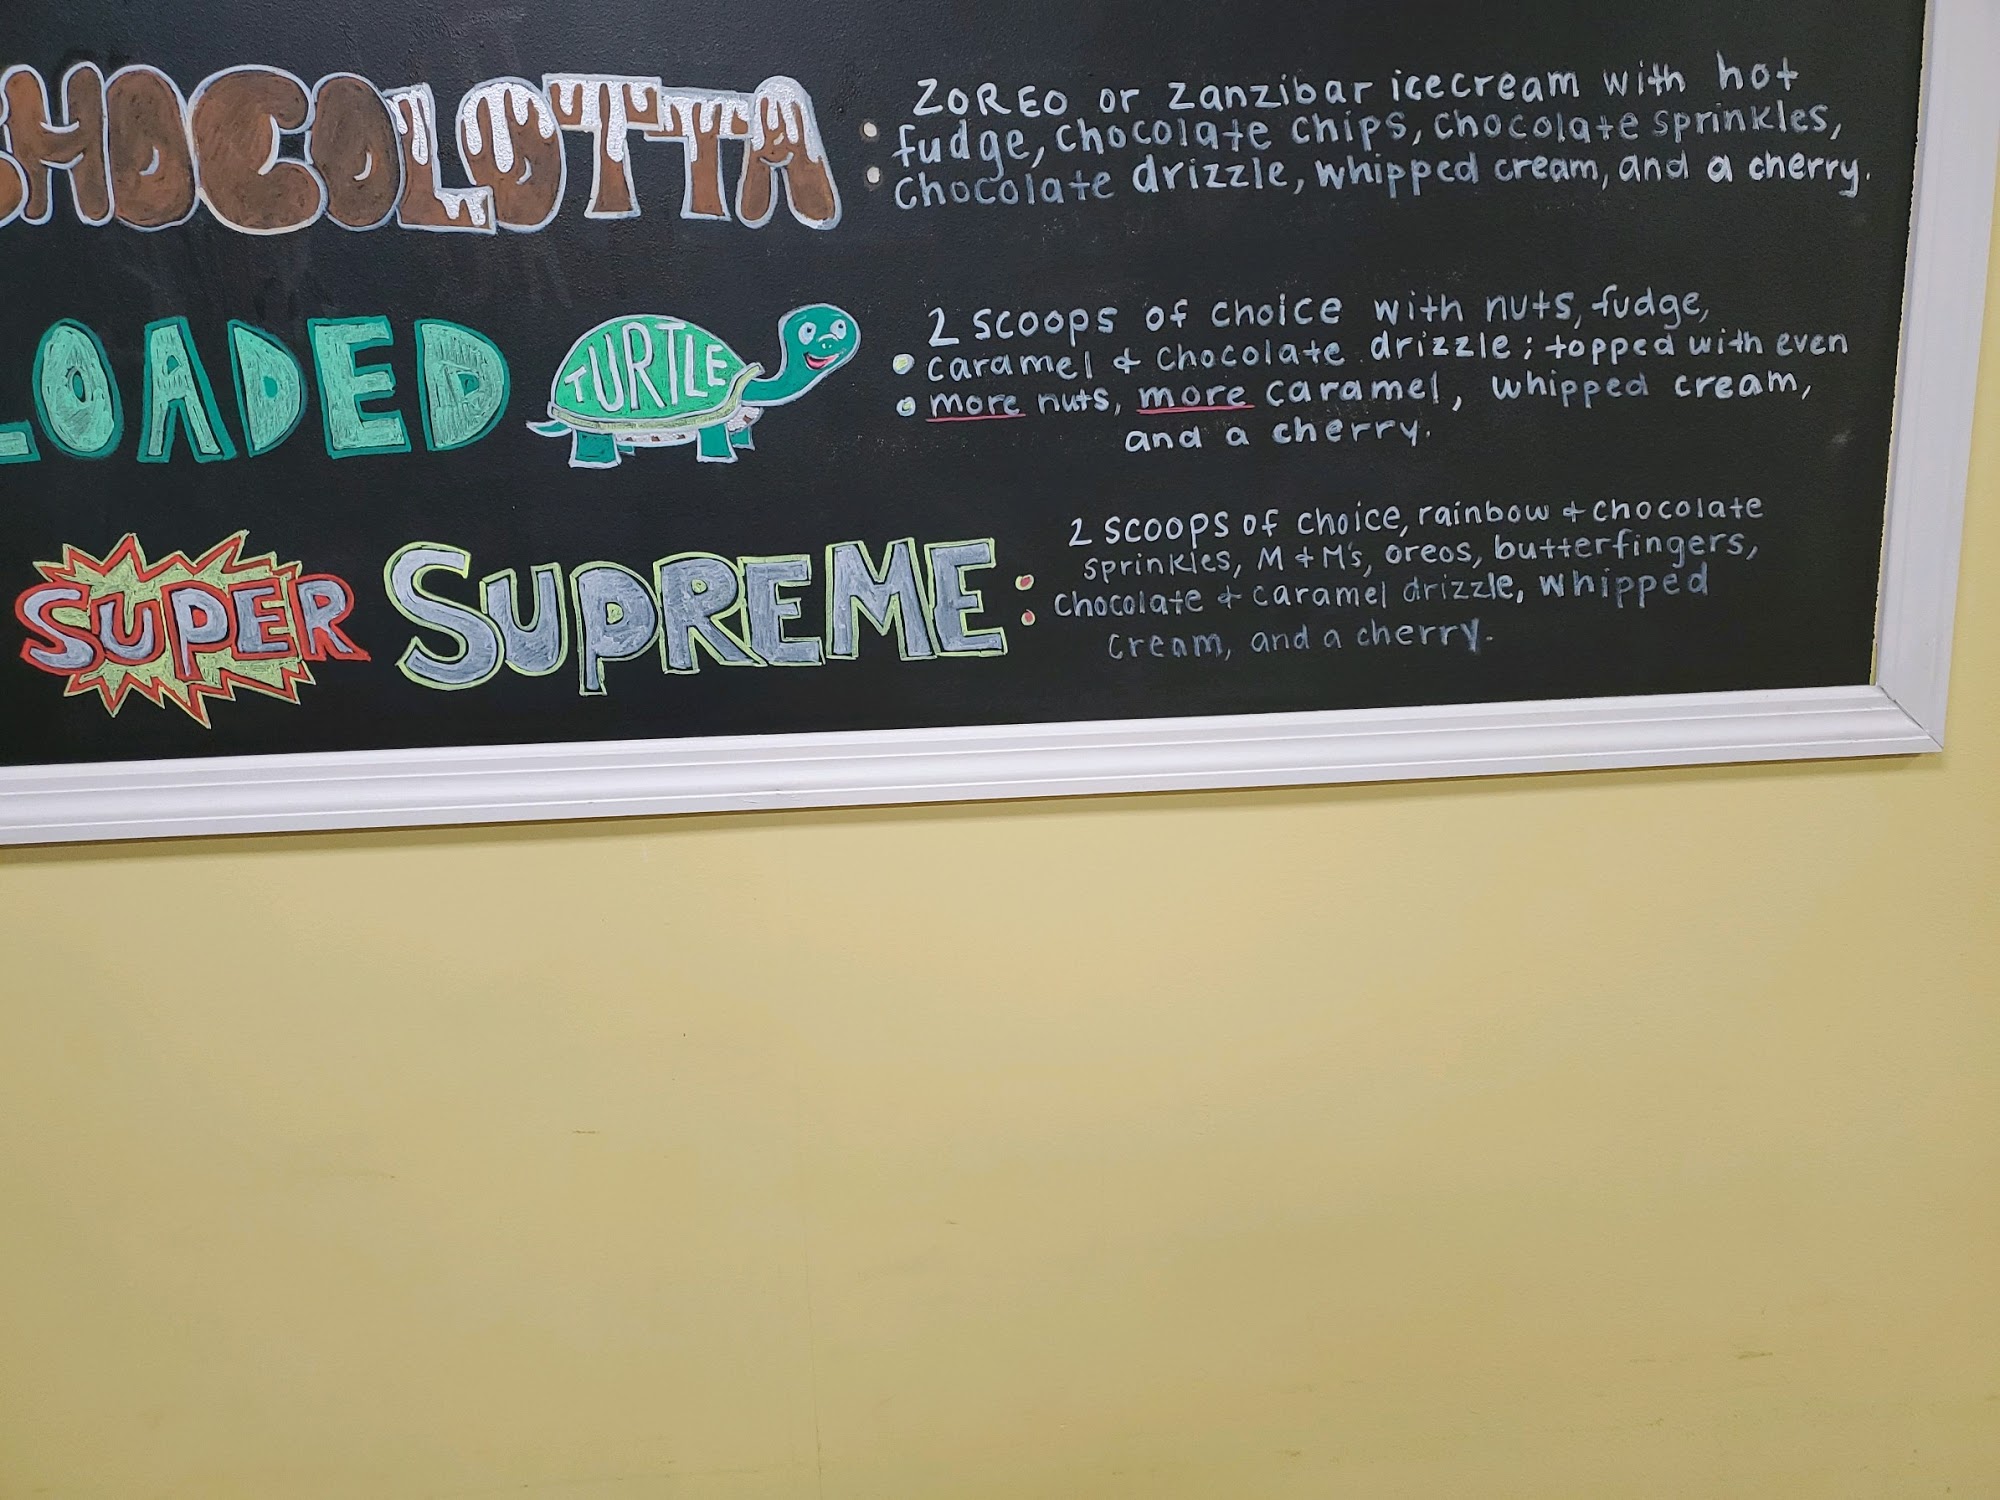 CHOCOLOTTA :
ZOREO or Zanzibar icecream with hot
fudge, chocolate chips, chocolate sprinkles,
chocolate drizzle, whipped cream, and a cherry.
LOADED TURTLE :
2 scoops of choice with nuts, fudge,
caramel & chocolate drizzle; topped with even
more nuts, more caramel, whipped cream,
and a cherry.
SUPER SUPREME :
2 scoops of choice, rainbow & chocolate
sprinkles, M & M's, oreos, butterfingers,
chocolate & caramel drizzle, whipped
cream, and a cherry.